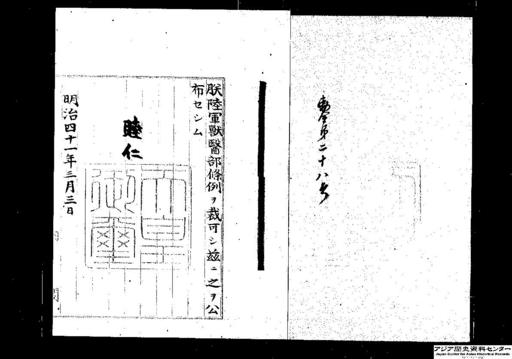 勅令第二十八号
朕陸軍獸醫部條例ヲ裁可シ茲ニ之ヲ公
布セシム
睦仁
天皇
御璽
明治四十一年三月三日
アジア歴史資料センター
Japan Center for Asian Historical Records